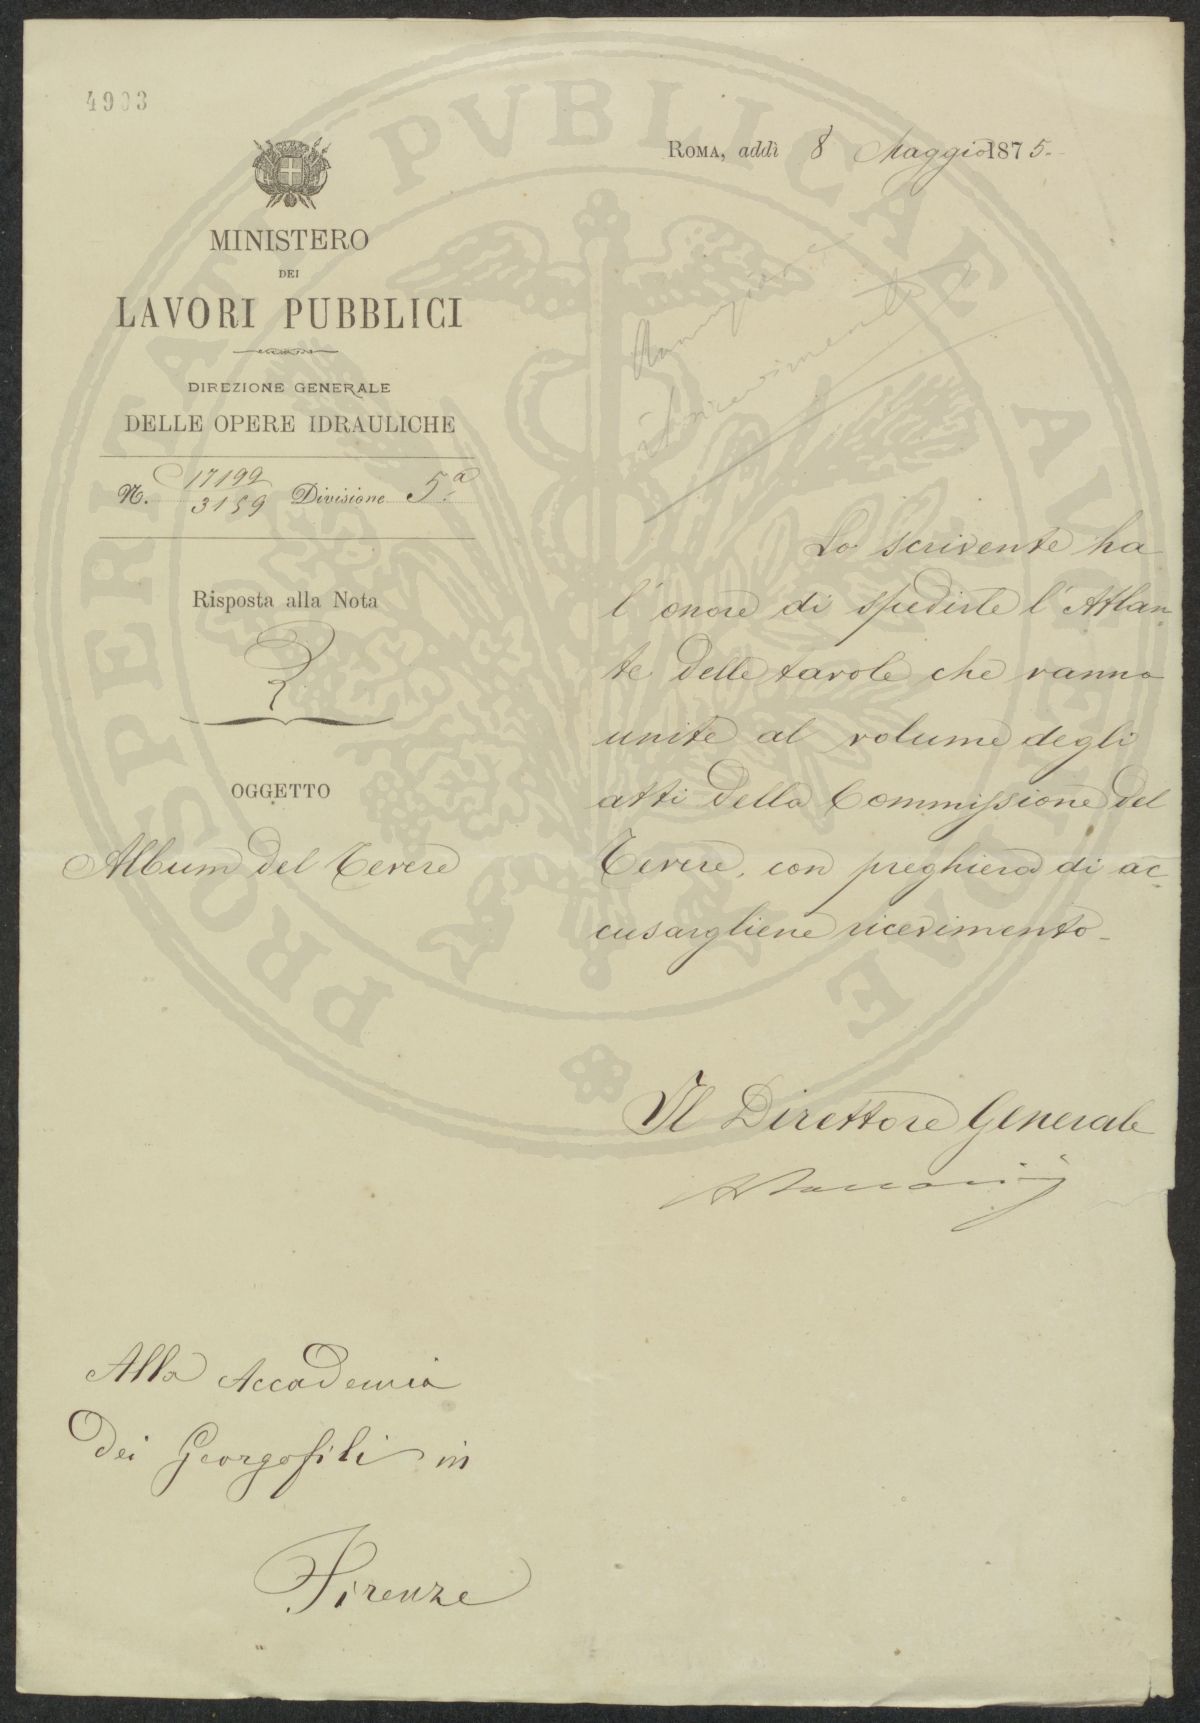 4903
ROMA, addì 8 Maggio 1875.
MINISTERO
DEI
LAVORI PUBBLICI
DIREZIONE GENERALE
DELLE OPERE IDRAULICHE
N. 17199
3159 Divisione 5.a
Risposta alla Nota
OGGETTO
Album del Tevere
il ricevimento
Lo scrivente ha
l'onore di spedirle l'Atlan-
te delle tavole che vanno
unite al volume degli
atti della Commissione del
Tevere, con preghiera di ac-
cusargliene ricevimento.
Il Direttore Generale
Alla Accademia
dei Georgofili in
Firenze
PROSPERITATI PVBLICAE AVGENDAE